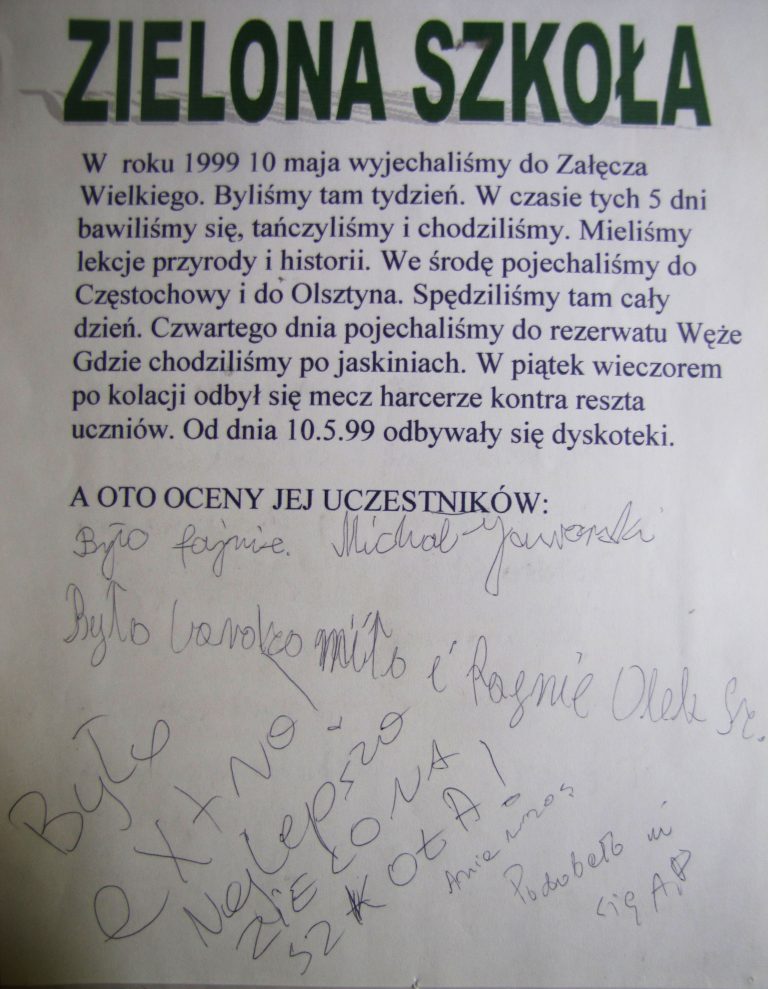 ZIELONA SZKOŁA
W roku 1999 10 maja wyjechaliśmy do Załęcza
Wielkiego. Byliśmy tam tydzień. W czasie tych 5 dni
bawiliśmy się, tańczyliśmy i chodziliśmy. Mieliśmy
lekcje przyrody i historii. We środę pojechaliśmy do
Częstochowy i do Olsztyna. Spędziliśmy tam cały
dzień. Czwartego dnia pojechaliśmy do rezerwatu Węże
Gdzie chodziliśmy po jaskiniach. W piątek wieczorem
po kolacji odbył się mecz harcerze kontra reszta
uczniów. Od dnia 10.5.99 odbywały się dyskoteki.
A OTO OCENY JEJ UCZESTNIKÓW:
Było fajnie. Michał Jaworski
Było bardzo miło i fajnie Olek Sz.
Było
exxno!
Najlepsza
ZIELONA
SZKOŁA!
Podobało mi
się A.P